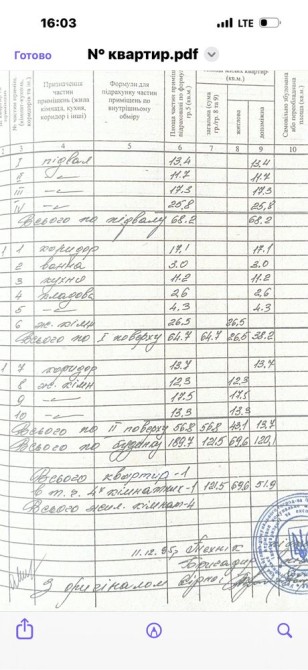 16:03 LTE
Готово № квартир.pdf
№ приміщення, (кімната, кухня, коридор та ін.)
Призначення частин приміщень (жила кімната, кухня, коридор і інші)
Формули для підрахунку частин приміщень по внутрішньому обміру
загальна (сума гр. гр. 8 та 9)
житлова
допоміжна
(кв.м.)
1 3 4 5 6 7 8 9 10
I підвал 13,4 13,4
II -"- 11.7 11.7
III -"- 17.3 17.3
IV -"- 25,8 25,8
Всього по підвалу 68.2 68.2
1 1 коридор 17,1 17.1
2 ванна 3.0 3.0
3 кухня 11.2 11.2
4 кладова 2,6 2,6
5 -"- 4.3 4.3
6 ж. кімн 26.5 26,5
Всього по I поверху 64.7 64.7 26.5 38.2
1 7 коридор 13.7 13.7
8 ж. кімн 12.3 12.3
9 -"- 17.5 17.5
10 -"- 13.3 13.3
Всього по II поверху 56.8 56.8 43,1 13.7
Всього по будинку 189.7 121.5 69,6 120,1
Всього квартир - 1
в т.ч. 4х кімнатних - 1 121.5 69,6 51.9
Всього жил. кімнат - 4
11.12.95р. Технік
Бригадир
З оригіналом вірно